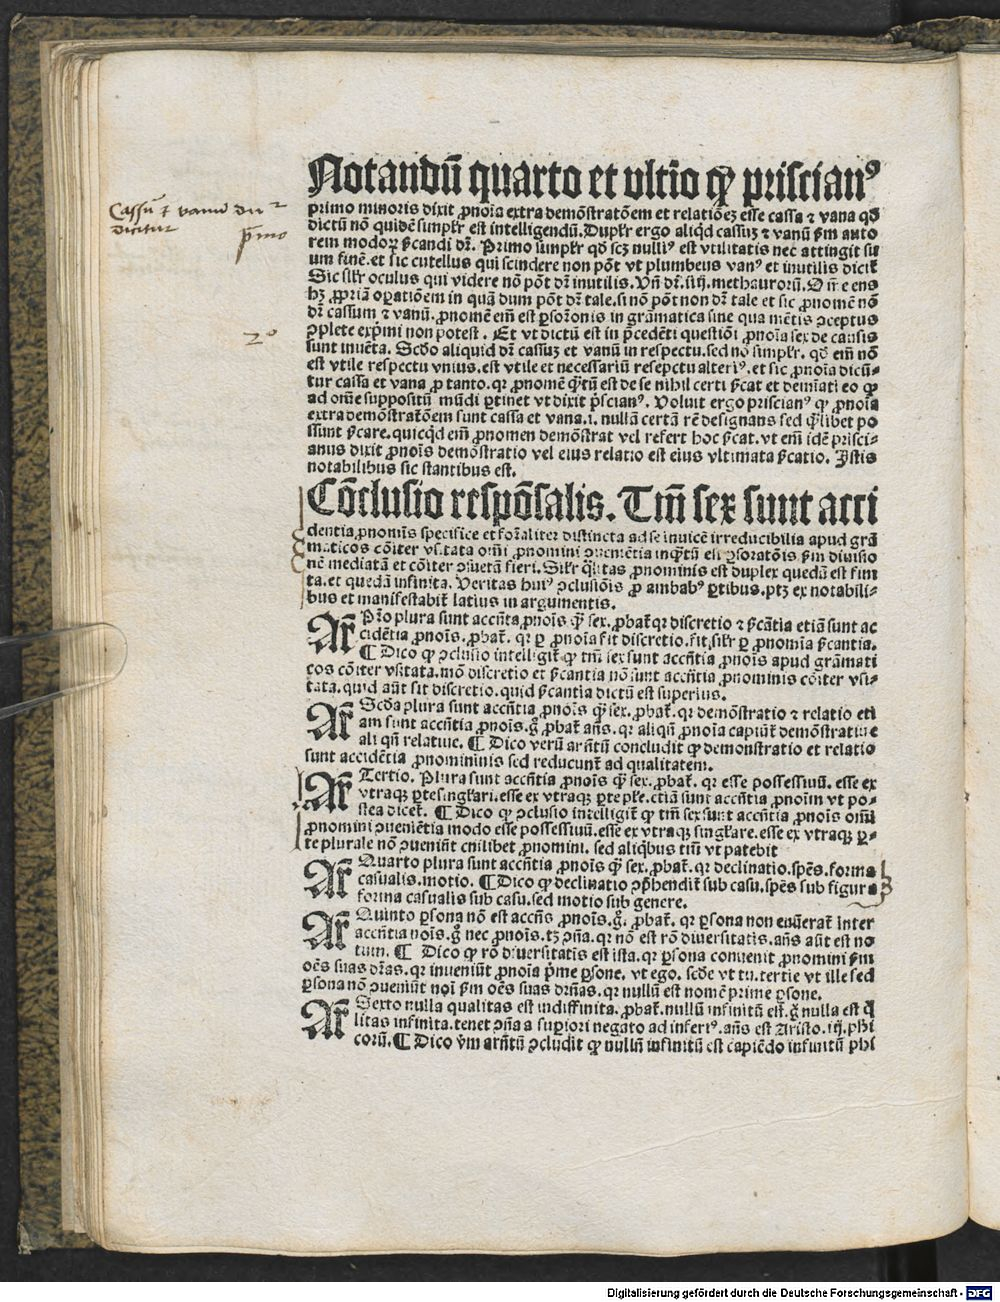 Notandū quarto et vltīo ꝙ priscianꝰ
primo minoris dixit ꝓnoīa extra demōstratōem et relatiōeʒ esse cassa ⁊ vana qđ
dictū nō quidē simplr̄ est intelligendū. Duplr̄ ergo aliqd cassuʒ ⁊ vanū ẞm auto
rem modoꝝ ẞcandi dr̄. Primo simplr̄ qđ scʒ nulliꝰ est vtilitatis nec attingit su
um finē. et sic cutellus qui scindere non pōt vt plumbeus vanꝰ et inutilis dicit̄
Sic silr̄ oculus qui videre nō pōt dr̄ inutilis. Vñ dr̄. iiij. methauroꝝ. Oīne ens
hʒ ꝓpriā oꝑatiōem in quā dum pōt dr̄ tale. si nō pōt non dr̄ tale et sic ꝓnomē nō
dr̄ cassum ⁊ vanū. ꝓnomē em̄ est ꝑsoꝝonis in grāmatica sine qua mētis ꝯceptus
ꝯplete exp̄mi non potest. Et vt dictū est in p̄cedēti questiōi ꝓnoīa sex de causis
sunt inuēta. Scđo aliquid dr̄ cassuʒ et vanū in respectu. sed nō simplr̄. qđ em̄ nō
est vtile respectu vnius. est vtile et necessariū resepctu alteriꝰ. et sic ꝓnoīa dicū-
tur cassa et vana ꝓ tanto. qꝛ ꝓnomē q̄tū est de se nihil certi ẞcat et demīati eo ꝙ
ad om̄e suppositū mūdi ꝑtinet vt dixit p̄scianꝰ. Voluit ergo priscianꝰ ꝙ ꝓnoīa
extra demōstratōem sunt cassa et vana. i. nullā certā rē designans sed q̄libet po
ssunt ẞcare. quicqđ em̄ ꝓnomen demōstrat vel refert hoc ẞcat. vt em̄ idē prisci-
anus dixit ꝓnoīs demōstratio vel eius relatio est eius vltimata ẞcatio. Istis
notabilibus sic stantibus est.
Cōclusio respōsalis. Tm̄ sex sunt acci
dentia ꝓnomīs specifice et foꝛaliter distincta ad se inuicē irreducibilia apud grā
maticos cōiter vsitata om̄i ꝓnomini ꝯueniētia inq̄tū est ꝑsoratōis ẞm diuisio
nē mediatā et cōiter ꝯsuetā fieri. Silr̄ q̄litas ꝓnominis est duplex quedā est fini
ta. et quedā infinita. Veritas huiꝰ ꝯclusiōis ꝓ ambabꝰ ꝑtibus. ptʒ ex notabili-
bus et manifestabit̄ latius in argumentis.
Ar̄ Pr̄o plura sunt accn̄ta ꝓnoīs q̄ sex. ꝓbat̄ qꝛ discretio ⁊ ẞcātia etiā sunt ac
cidētia ꝓnoīs. ꝓbat̄. qꝛ ꝑ ꝓnoīa fit discretio. fit silr̄ ꝑ ꝓnomīa ẞcantia.
¶ Dico ꝙ ꝯclusio intelligit̄ ꝙ tm̄ sex sunt accn̄tia ꝓnoīs apud grāmati
cos cōiter vsitata. mō discretio et ẞcantia nō sunt accn̄tia ꝓnominis cōiter vsi-
tata. quid aūt sit discretio. quid ẞcantia dictū est superius.
Ar̄ Scđa plura sunt accn̄tia ꝓnoīs q̄ sex. ꝓbat̄. qꝛ demōstratio ⁊ relatio eti
am sunt accn̄tia ꝓnoīs. g̊ ꝓbat̄ an̄s. qꝛ aliqn̄ ꝓnoīa capiūt̄ demōstratiue
ali qn̄ relatiue. ¶ Dico verū arn̄tū concludit ꝙ demonstratio et relatio
sunt accidētia ꝓnomininis sed reducunt̄ ad qualitatem.
Ar̄ Tertio. Plura sunt accn̄tia ꝓnoīs q̄ sex. ꝓbat̄. qꝛ esse possessiuū. esse ex
vtraqꝫ ꝑte singl̄ari. esse ex vtraqꝫ ꝑte ple̅. etiā sunt accn̄tia ꝓnoīm vt po-
stea dicet̄. ¶ Dico ꝙ ꝯclusio intelligit̄ ꝙ tm̄ sex sunt accn̄tia ꝓnoīs om̄i
ꝓnomini ꝯueniētia modo esse possessiuū. esse ex vtraqꝫ singl̄are. esse ex vtraqꝫ ꝑ-
te plurale nō ꝯueniūt cuilibet ꝓnomini. sed aliqbus tm̄ vt patebit
Ar̄ Quarto plura sunt accn̄tia ꝓnoīs q̄ sex. ꝓbat̄. qꝛ declinatio. spēs. forma
casualis. motio. ¶ Dico ꝙ declinatio ꝯp̄hendit̄ sub casu. spēs sub figura
forma casualis sub casu. sed motio sub genere.
Ar̄ Quinto ꝑsona nō est accn̄s ꝓnoīs. g̊. ꝓbat̄. qꝛ ꝑsona non enūerat̄ inter
accn̄tia noīs. g̊ nec ꝓnoīs. tʒ ꝯn̄a. qꝛ nō est rō diuersitatis. an̄s aūt est no
tum. ¶ Dico ꝙ rō diuersitatis est ista. qꝛ ꝑsona conuenit ꝓnomini ẞm
oēs suas dr̄as. qꝛ inueniūt̄ ꝓnoīa p̄me ꝑsone. vt ego. scđe vt tu. tertie vt ille sed
ꝑsona nō ꝯueniūt noī ẞm oēs suas dr̄n̄as. qꝛ nullū est nomē prime ꝑsone.
Ar̄ Sexto nulla qualitas est indiffinita. ꝓbat̄. nullū infinitū est. g̊ nulla est q̄
litas infinita. tenet ꝯn̄a a suꝑiori negato ad inferiꝰ. an̄s est Aristo. iij. phi
coꝝ. ¶ Dico vm̄ arn̄tū ꝯcludit ꝙ nullū infinitū est capiēdo infinitū phi
Cassū ⁊ vanū
dicitur
p̄mo
2°
Digitalisierung gefördert durch die Deutsche Forschungsgemeinschaft - DFG